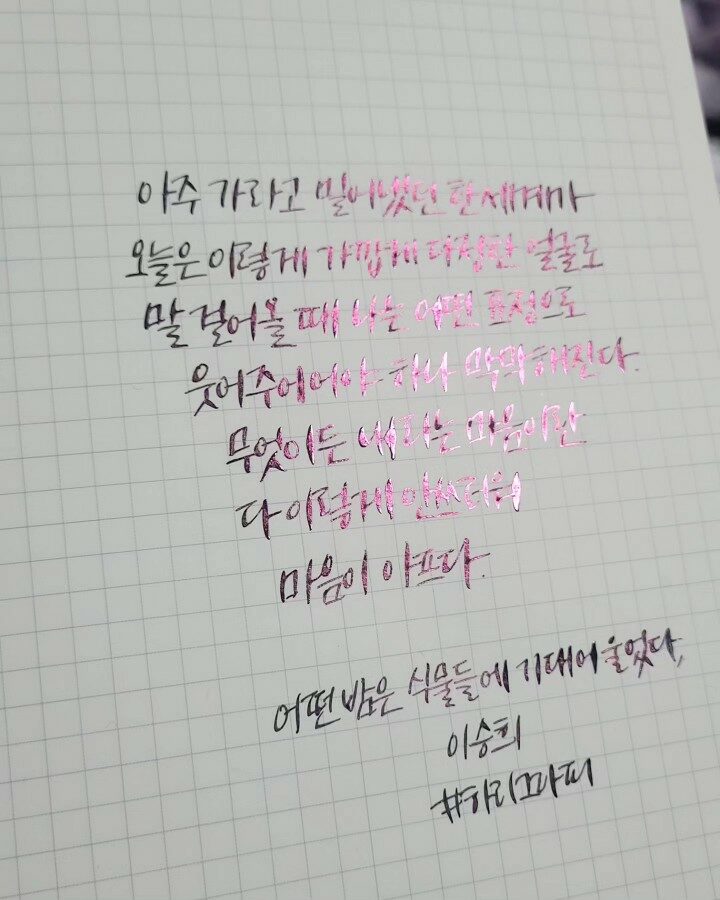 아주 가라고 밀어냈던 한 세계가
오늘은 이렇게 가깝게 다정한 얼굴로
말 걸어올 때 나는 어떤 표정으로
웃어주어야 하나 막막해진다.
무엇이든 내 라는 마음이란
다 이렇게 안쓰러워
마음이 아프다.
어떤 밤은 식물들에 기대어 울었다,
이승희